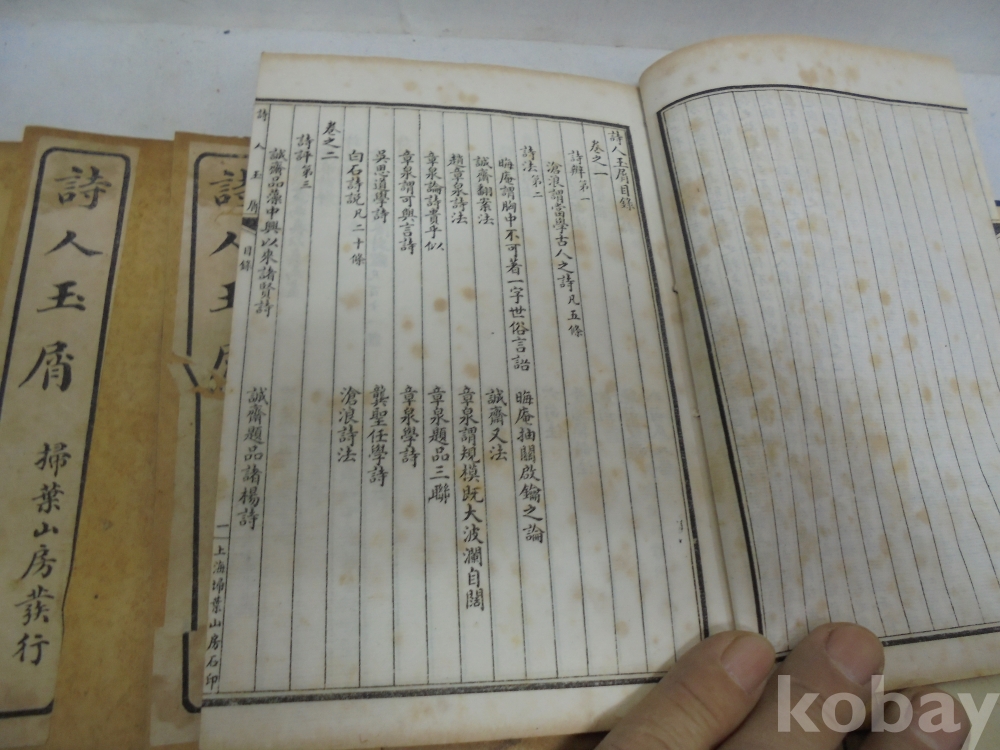 詩人玉屑目錄
卷之一
詩辨第一
滄浪謂當學古人之詩凡五條
詩法第二
晦庵謂胸中不可着一字世俗言語
晦庵抽關啟鑰之論
誠齋翻案法
誠齋又法
趙章泉詩法
章泉謂規模既大波瀾自闊
章泉論詩貴乎似
章泉題品三聯
章泉謂可與言詩
章泉學詩
吳思道學詩
龔聖任學詩
白石詩說凡二十條
滄浪詩法
卷之二
詩評第三
誠齋品藻中興以來諸賢詩
誠齋題品諸楊詩
詩人玉屑
目錄
一
上海埽葉山房石印
詩人玉屑
詩人玉屑
掃葉山房發行
kobay